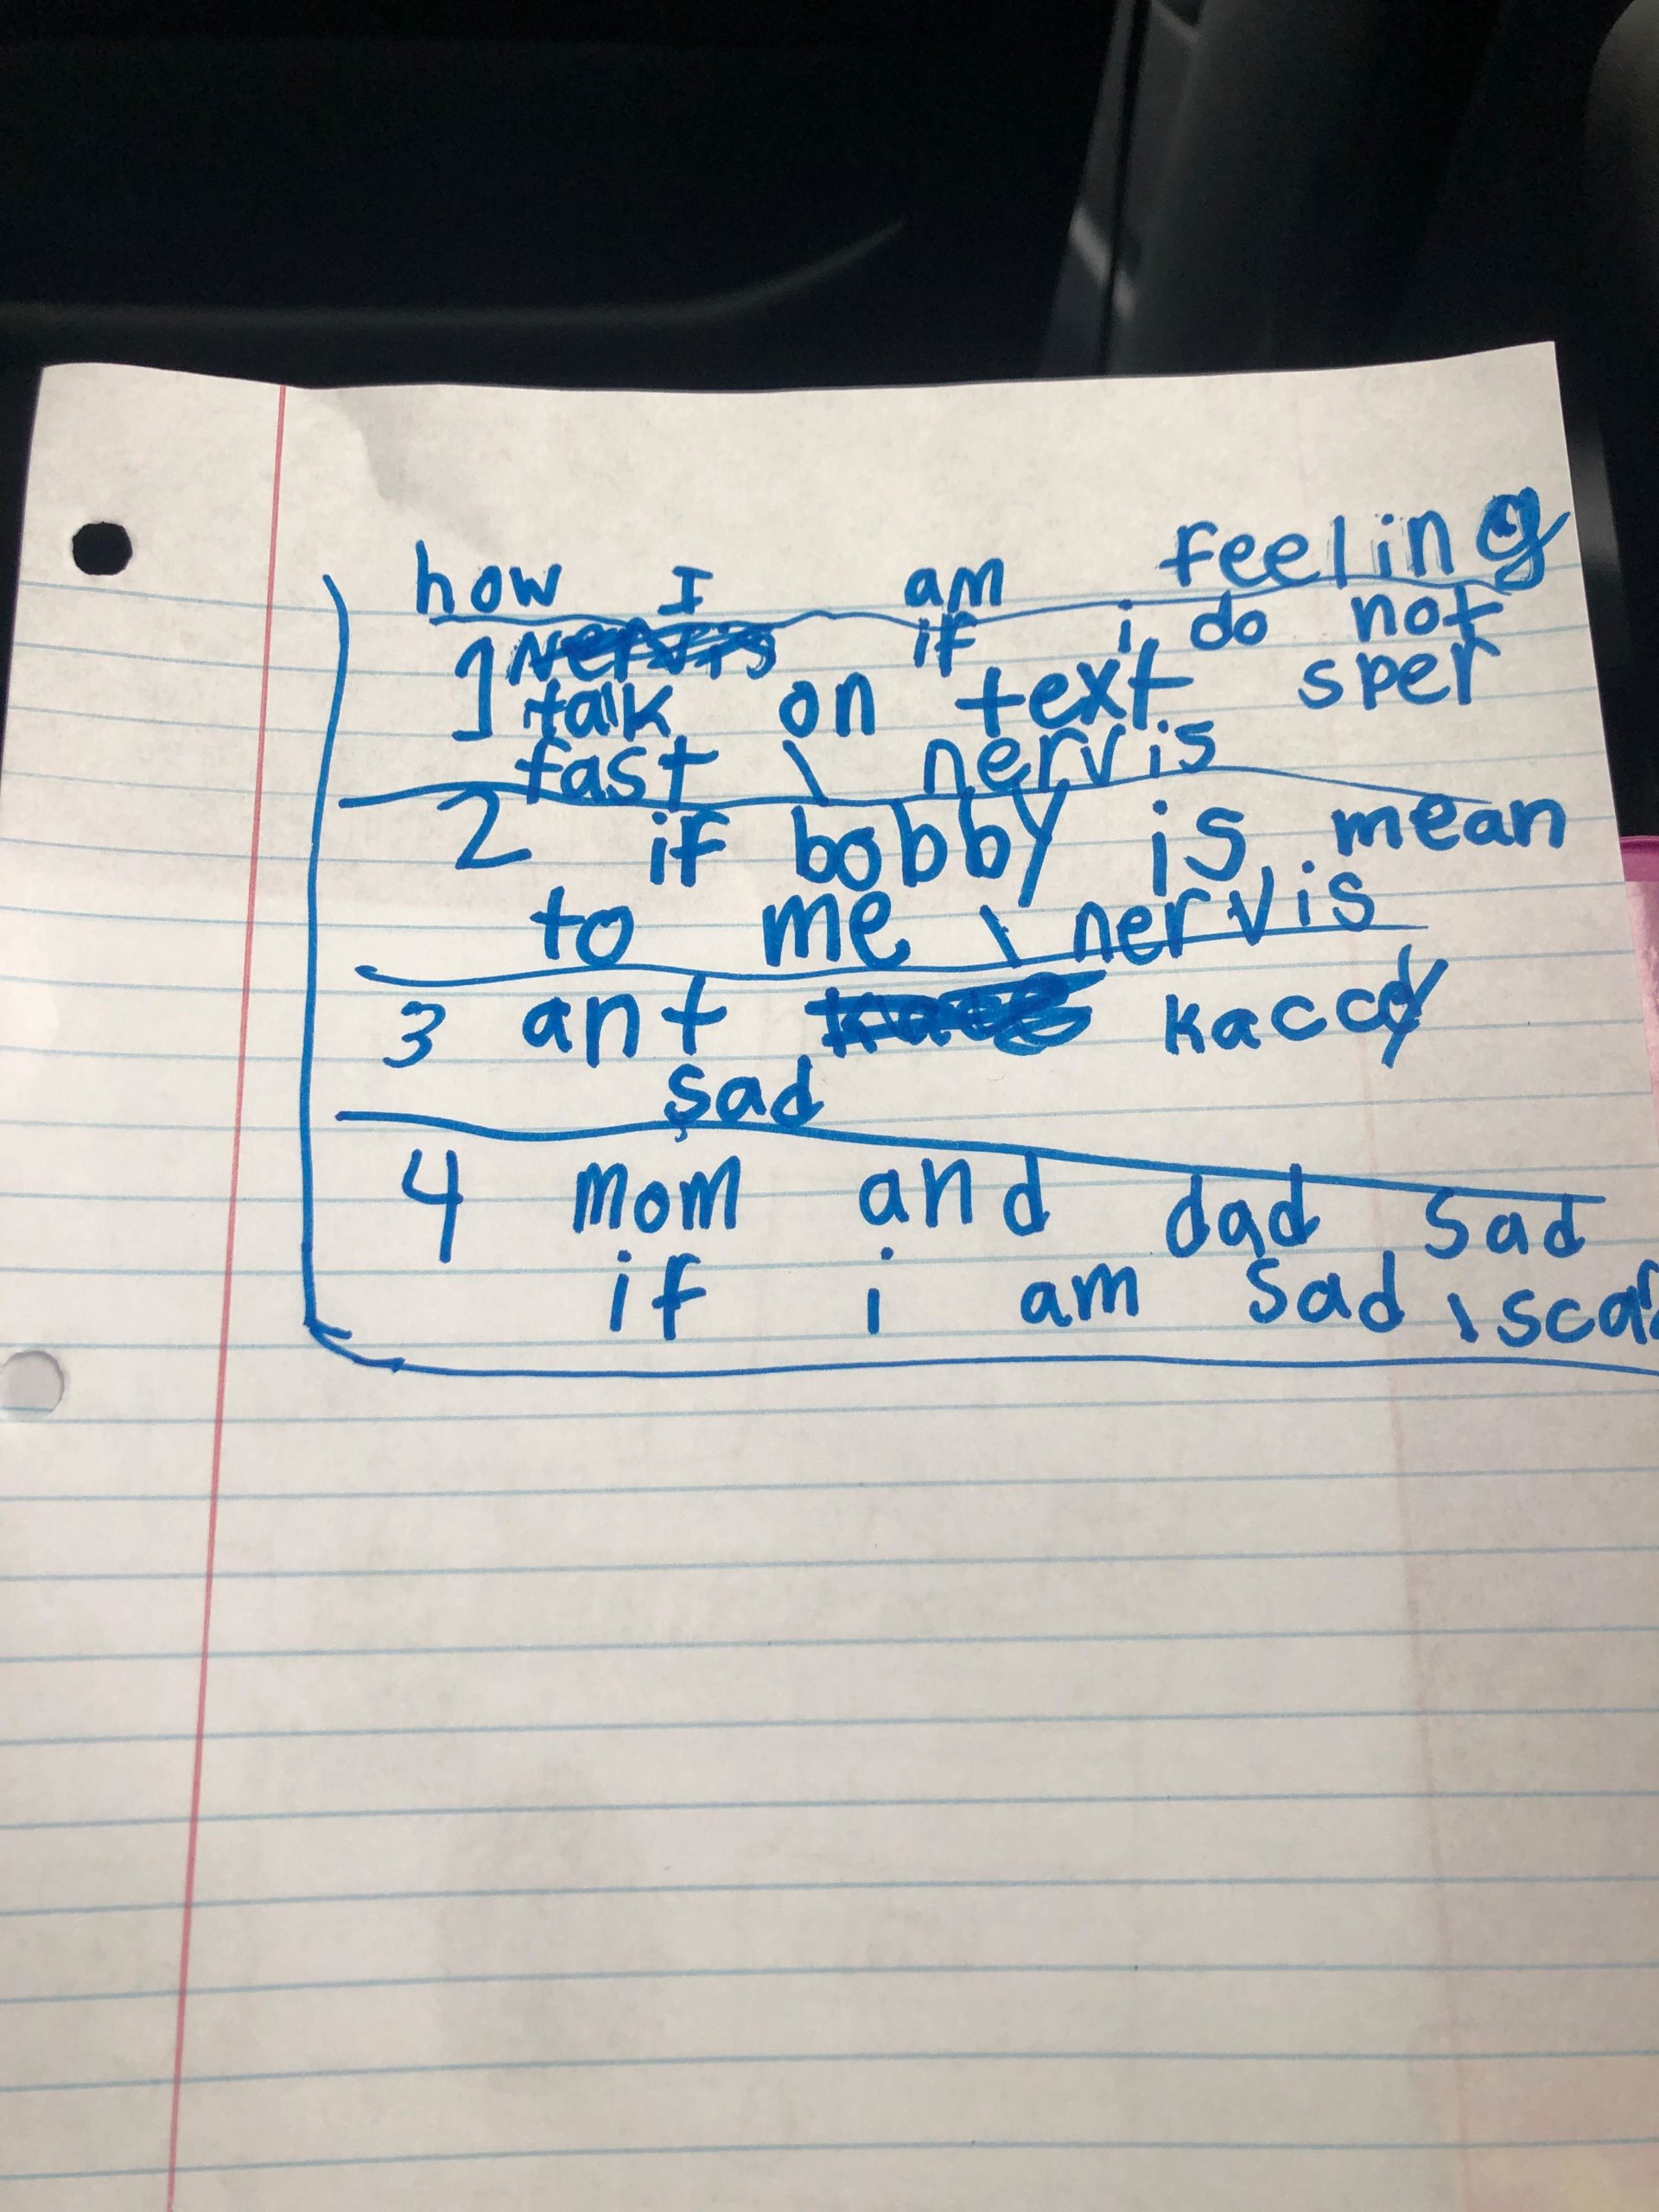 how I am feeling
1 Nervis if i do not
talk on text sper
fast \ nervis
2 if bobby is mean
to me \ nervis
3 ant kaccy
sad
4 mom and dad sad
if i am sad \